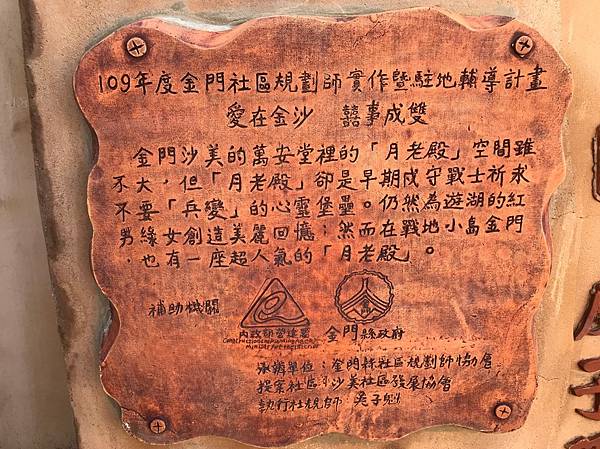 109年度金門社區規劃師實作暨駐地輔導計畫
愛在金沙 囍事成雙
金門沙美的萬安堂裡的「月老殿」空間雖
不大,但「月老殿」卻是早期戍守戰士祈求
不要「兵變」的心靈堡壘。仍然為遊湖的紅
男綠女創造美麗回憶;然而在戰地小島金門
,也有一座超人氣的「月老殿」。
補助機關
內政部營建署
金門縣政府
承辦單位:金門縣社區規劃師協會
提案社區:沙美社區發展協會
執行社規師:吳子